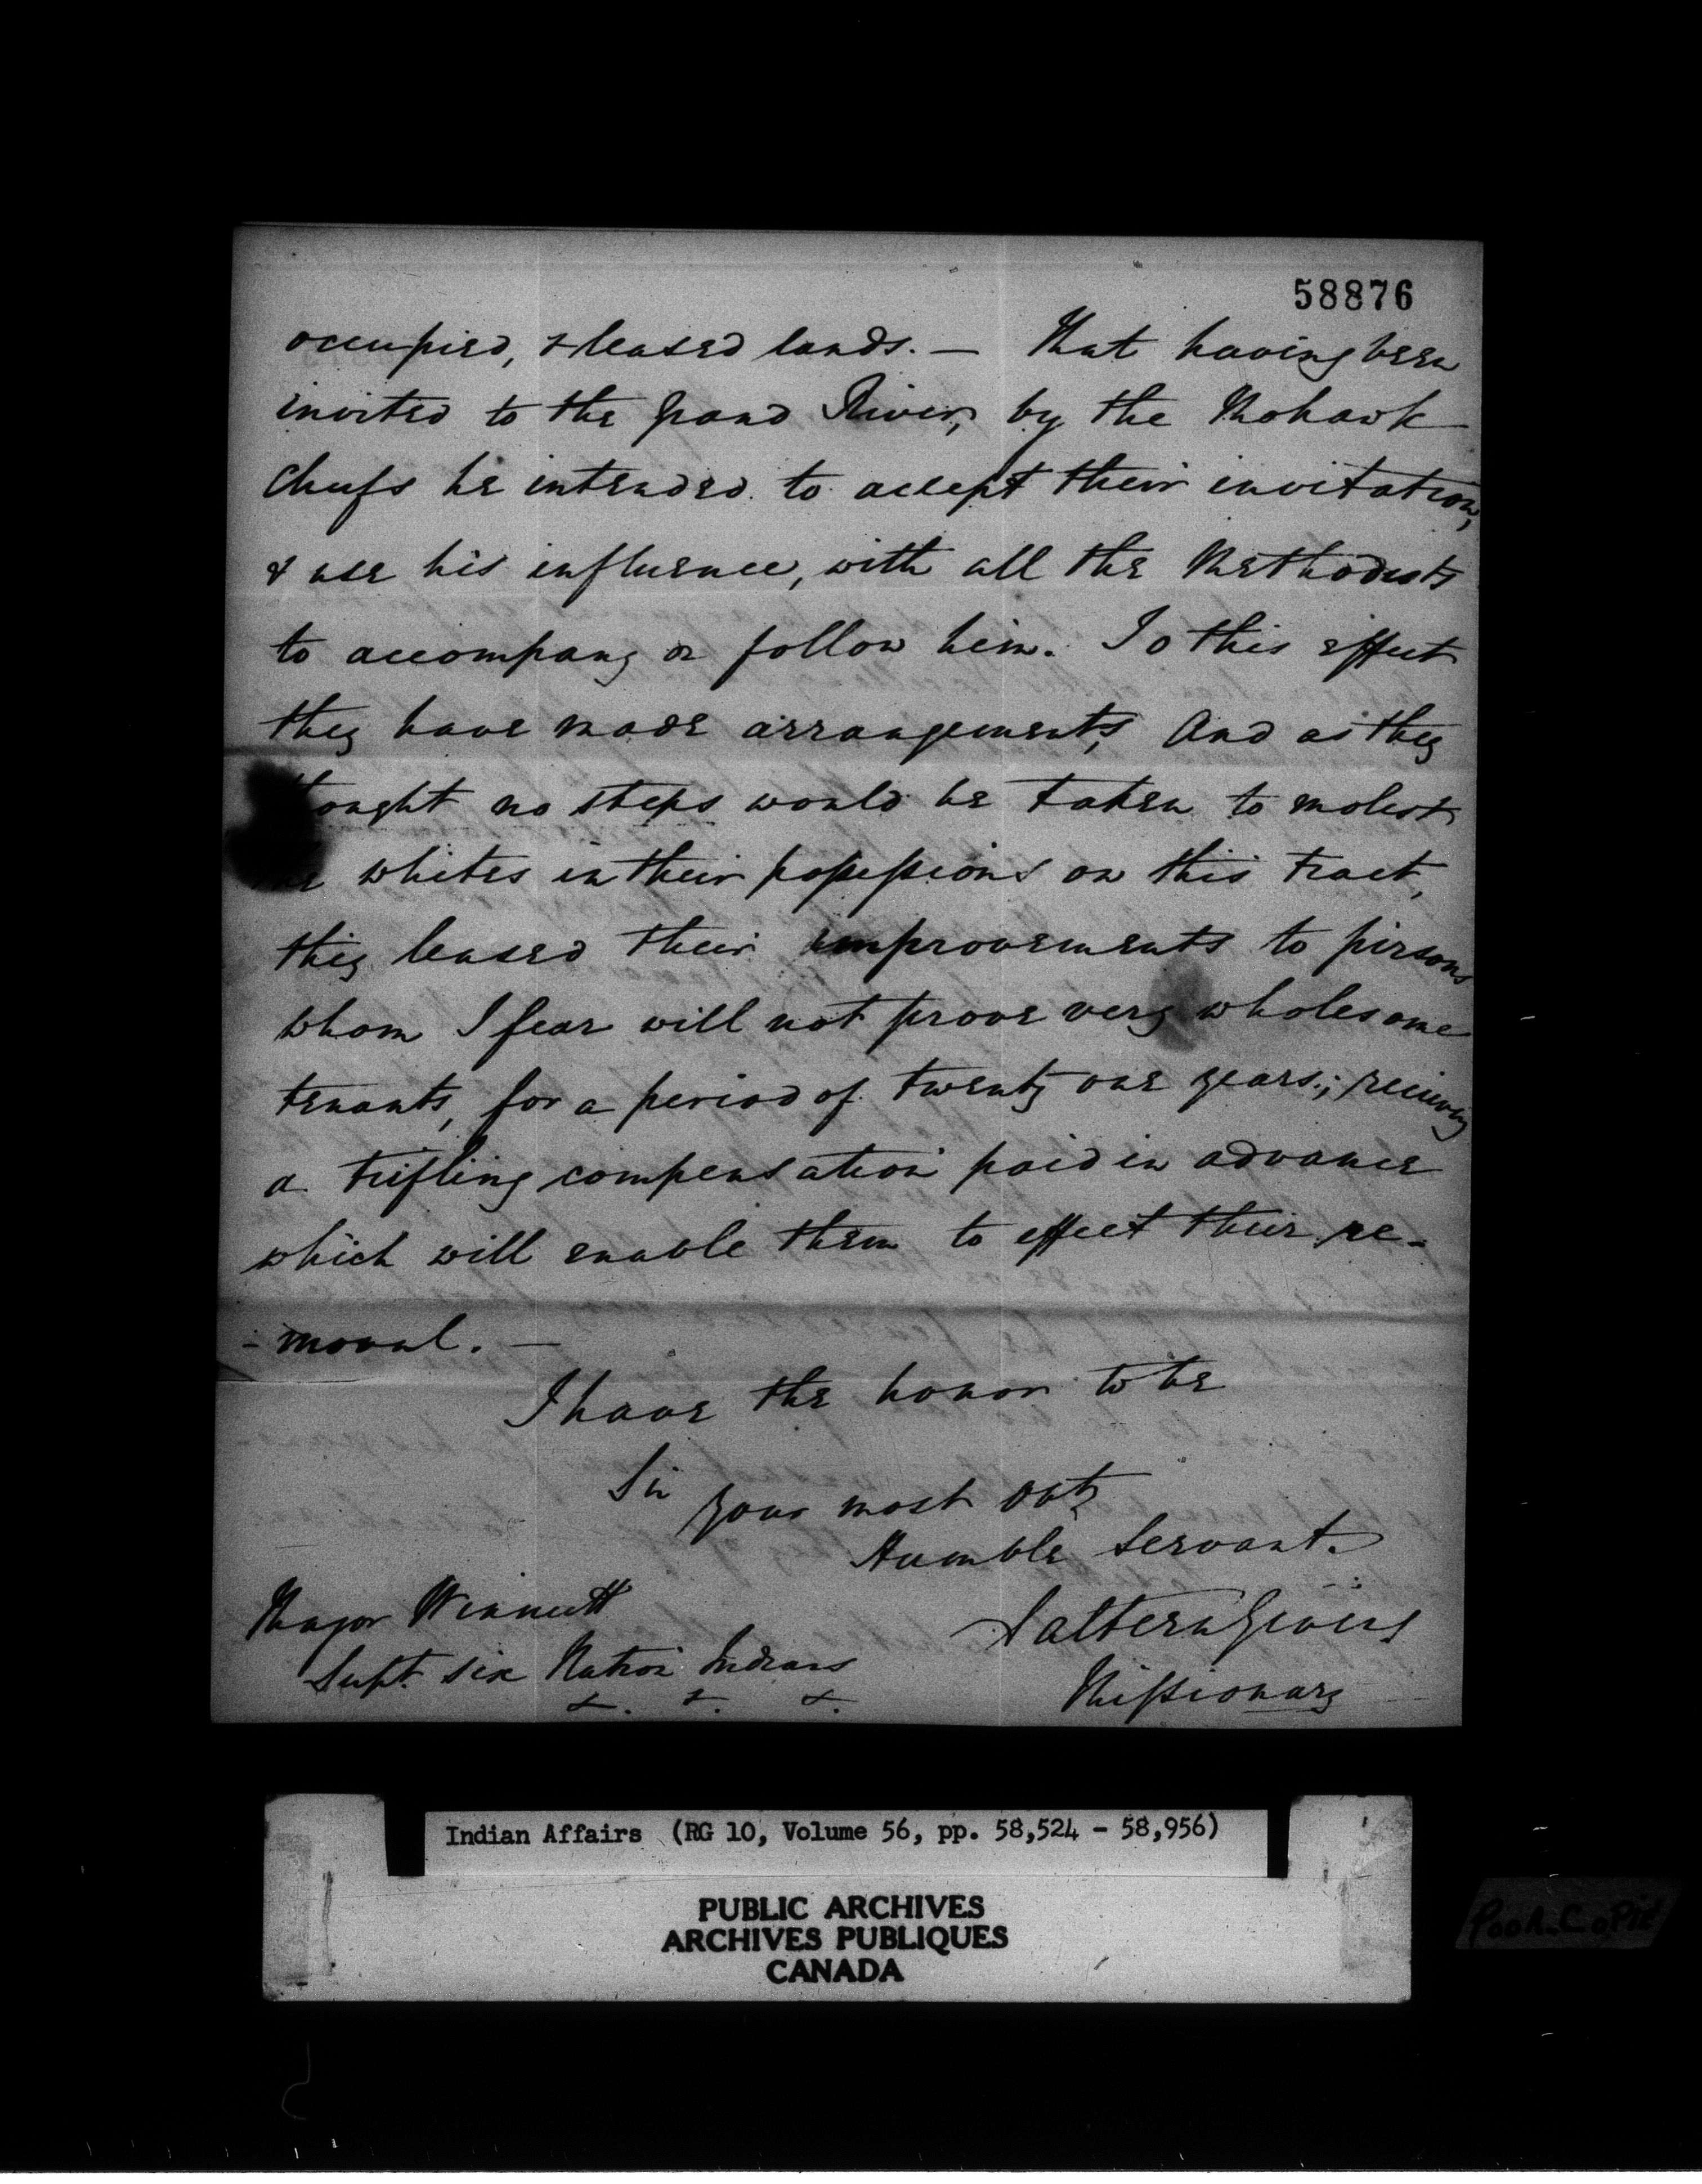 58876
occupied, & leased lands. — That having been
invited to the Grand River, by the Mohawk
Chiefs he intended to accept their invitation,
& use his influence, with all the Methodists
to accompany or follow him. To this effect
they have made arrangements, And as they
thought no steps would be taken to molest
the whites in their possessions on this tract,
they leased their improvements to persons
whom I fear will not prove very wholesome
tenants, for a period of twenty one years; receiving
a trifling compensation paid in advance
which will enable them to effect their re-
- moval. —
I have the honor to be
Sir
your most obt
Humble Servant.
Major Winniett
Saltern Givins
Supt. Six Nation Indians
Missionary
&. &. &.
Indian Affairs (RG 10, Volume 56, pp. 58,524 - 58,956)
PUBLIC ARCHIVES
ARCHIVES PUBLIQUES
CANADA